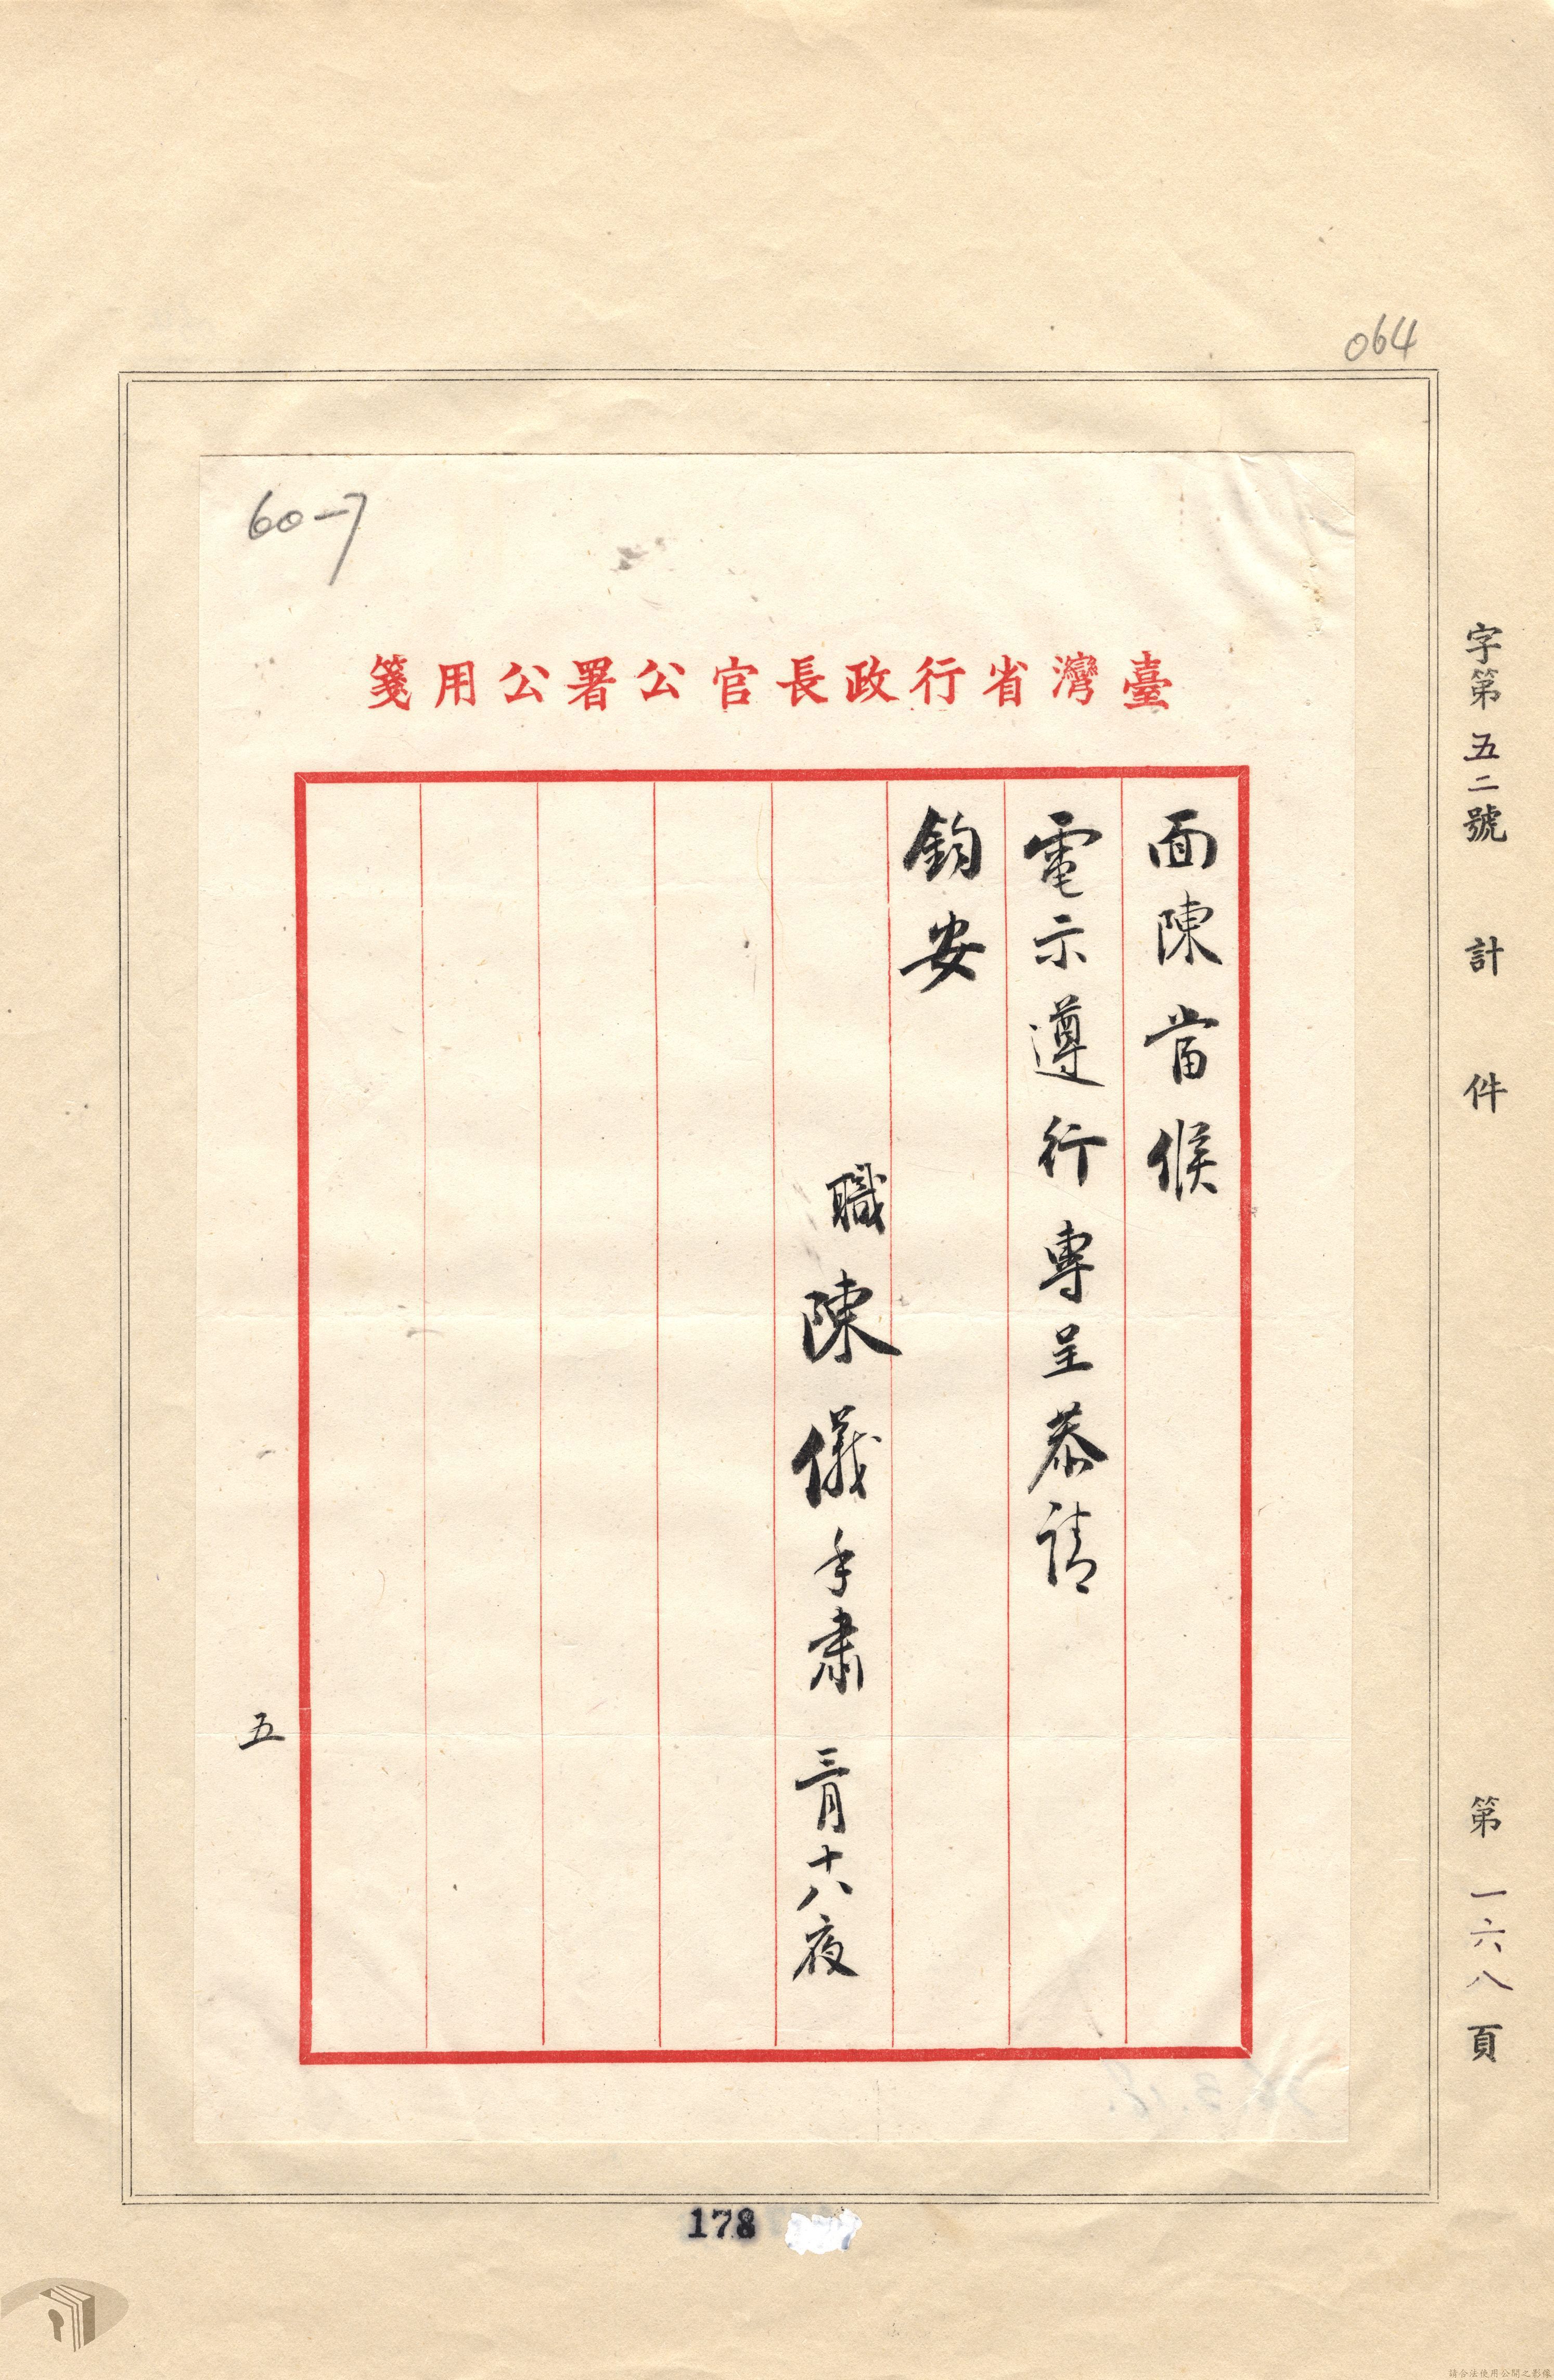 064
60-7
臺灣省行政長官公署公用箋
面陳當候
電示遵行專呈恭請
鈞安
職陳儀手肅 三月十八夜
五
字第五二號 計 件 第一六八頁
178
請合法使用公開之影像